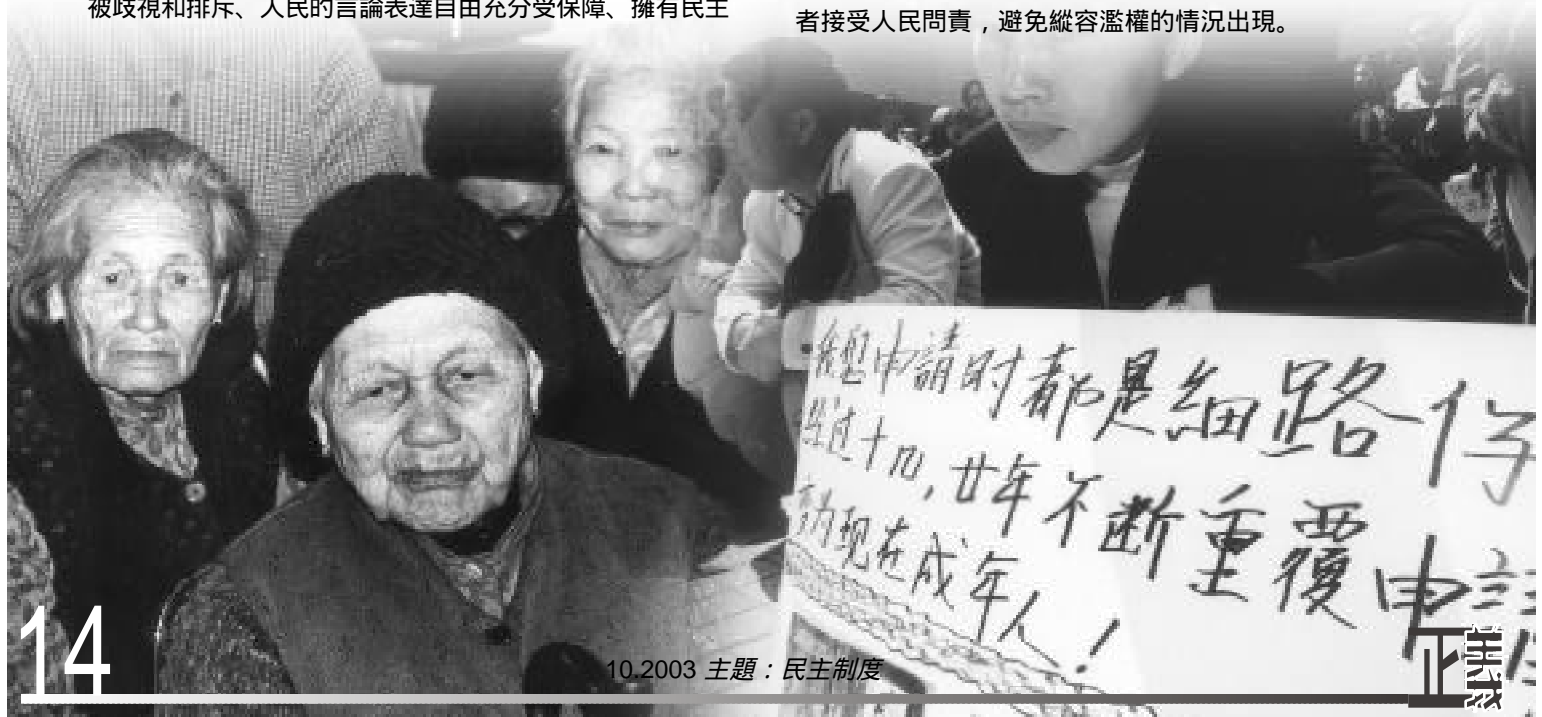 被歧視和排斥、人民的言論表達自由充分受保障、擁有民主
者接受人民問責，避免縱容濫權的情況出現。
申請时都是細路仔
经过十,廿年不断重覆申請
现在成年人！
14
10.2003 主題：民主制度
正義